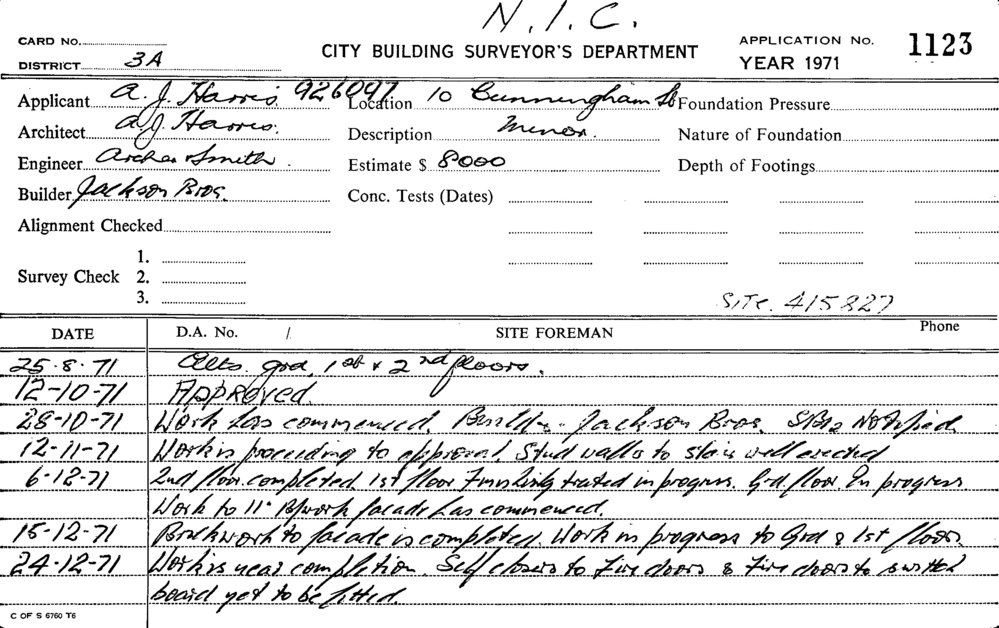 N.I.C.
CARD No.
CITY BUILDING SURVEYOR'S DEPARTMENT
APPLICATION No. 1123
DISTRICT 3A
YEAR 1971
Applicant A. J. Harris. 926097 Location 10 Cunningham St Foundation Pressure
Architect A. J. Harris. Description Minor. Nature of Foundation
Engineer Archer Smith. Estimate $ 8000 Depth of Footings
Builder Jackson Bros. Conc. Tests (Dates)
Alignment Checked
1.
Survey Check 2.
3.
Site. 415827
DATE D.A. No. / SITE FOREMAN Phone
25.8.71 Alts. grd, 1st & 2nd floors.
12-10-71 Approved.
28-10-71 Work has commenced. Builder Jackson Bros. Notified
12-11-71 Work is proceeding to approval. Stud walls to stair well erected
6-12-71 2nd floor completed. 1st floor Finishing in progress. Grd. floor In progress
Work to facade has commenced.
15-12-71 Brickwork to facade is completed. Work in progress to Grd & 1st floor.
24.12.71 Work is near completion. Self closers to Fire doors & Fire doors to switch
board yet to be fitted.
C OF S 6760 T6